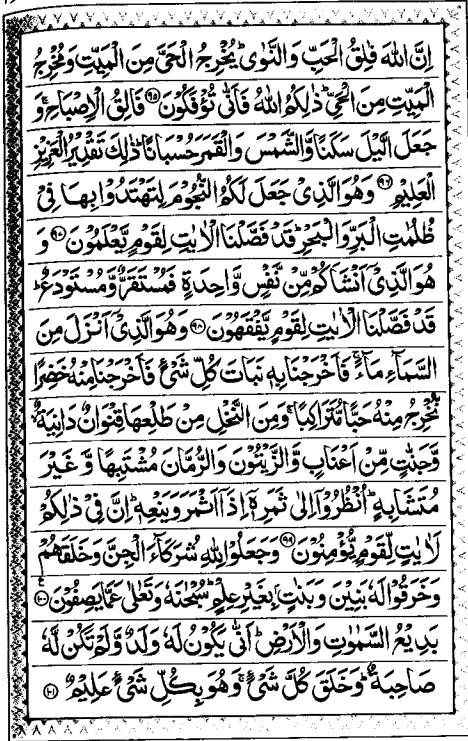 اِنَّ اللّٰهَ فٰلِقُ الْحَبِّ وَالنَّوٰى ؕ يُخْرِجُ الْحَىَّ مِنَ الْمَيِّتِ وَمُخْرِجُ
الْمَيِّتِ مِنَ الْحَىِّ ؕ ذٰلِكُمُ اللّٰهُ فَاَنّٰى تُؤْفَكُوْنَ ﴿۹۵﴾ فَالِقُ الْاِصْبَاحِ ۚ وَ
جَعَلَ الَّيْلَ سَكَنًا وَّالشَّمْسَ وَالْقَمَرَ حُسْبَانًا ؕ ذٰلِكَ تَقْدِيْرُ الْعَزِيْزِ
الْعَلِيْمِ ﴿۹۶﴾ وَهُوَ الَّذِىْ جَعَلَ لَكُمُ النُّجُوْمَ لِتَهْتَدُوْا بِهَا فِىْ
ظُلُمٰتِ الْبَرِّ وَالْبَحْرِ ؕ قَدْ فَصَّلْنَا الْاٰيٰتِ لِقَوْمٍ يَّعْلَمُوْنَ ﴿۹۷﴾ وَ
هُوَ الَّذِىْۤ اَنْشَاَكُمْ مِّنْ نَّفْسٍ وَّاحِدَةٍ فَمُسْتَقَرٌّ وَّمُسْتَوْدَعٌ ؕ
قَدْ فَصَّلْنَا الْاٰيٰتِ لِقَوْمٍ يَّفْقَهُوْنَ ﴿۹۸﴾ وَهُوَ الَّذِىْۤ اَنْزَلَ مِنَ
السَّمَآءِ مَآءً ۚ فَاَخْرَجْنَا بِهٖ نَبَاتَ كُلِّ شَىْءٍ فَاَخْرَجْنَا مِنْهُ خَضِرًا
نُّخْرِجُ مِنْهُ حَبًّا مُّتَرَاكِبًا ۚ وَمِنَ النَّخْلِ مِنْ طَلْعِهَا قِنْوَانٌ دَانِيَةٌ
وَّجَنّٰتٍ مِّنْ اَعْنَابٍ وَّالزَّيْتُوْنَ وَالرُّمَّانَ مُشْتَبِهًا وَّغَيْرَ
مُتَشَابِهٍ ؕ اُنْظُرُوْۤا اِلٰى ثَمَرِهٖۤ اِذَاۤ اَثْمَرَ وَيَنْعِهٖ ؕ اِنَّ فِىْ ذٰلِكُمْ
لَاٰيٰتٍ لِّقَوْمٍ يُّؤْمِنُوْنَ ﴿۹۹﴾ وَجَعَلُوْا لِلّٰهِ شُرَكَآءَ الْجِنَّ وَخَلَقَهُمْ
وَخَرَقُوْا لَهٗ بَنِيْنَ وَبَنٰتٍۢ بِغَيْرِ عِلْمٍ ؕ سُبْحٰنَهٗ وَتَعٰلٰى عَمَّا يَصِفُوْنَ ﴿۱۰۰﴾
بَدِيْعُ السَّمٰوٰتِ وَالْاَرْضِ ؕ اَنّٰى يَكُوْنُ لَهٗ وَلَدٌ وَّلَمْ تَكُنْ لَّهٗ
صَاحِبَةٌ ؕ وَخَلَقَ كُلَّ شَىْءٍ ۚ وَهُوَ بِكُلِّ شَىْءٍ عَلِيْمٌ ﴿۱۰۱﴾